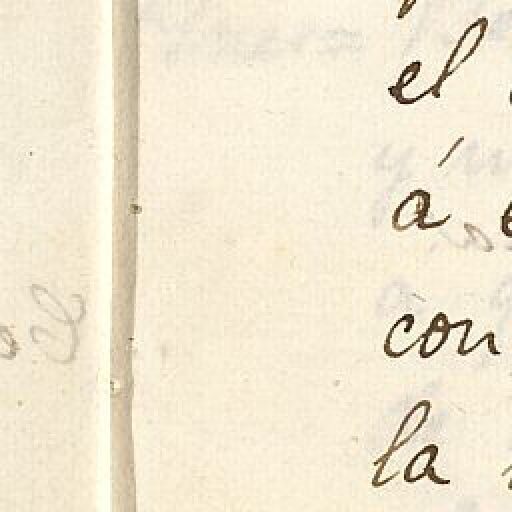 el
á
con
la